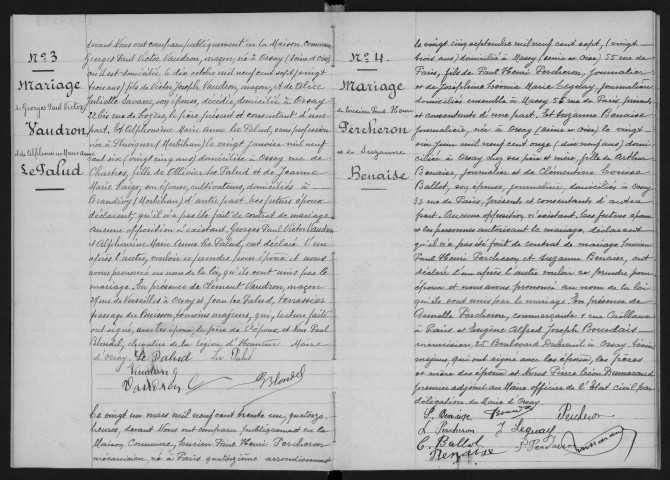 No. 3
Mariage
de Georges Paul Victor
Vaudron
et de Alphonsine Marie Anne
Le Palud
devant Nous ont comparu publiquement en la Maison commune
Georges Paul Victor Vaudron, maçon, né à Orsay (Seine et Oise)
où il est domicilié, le dix octobre mil neuf cent sept, vingt
trois ans, fils de Victor Joseph Vaudron, maçon, et de Alice
Juliette Lavane, son épouse, décédée, domicilié à Orsay
22 bis rue de Lozère, le père présent et consentant d'une
part. Et Alphonsine Marie Anne Le Palud, sans profession
née à Pluvigner (Morbihan) le vingt janvier mil neuf
cent six (vingt cinq ans) domiciliée à Orsay rue de
Chartres, fille de Ollivier Le Palud et de Jeanne
Marie Laigo, son épouse, cultivateurs, domiciliés à
Brandivy (Morbihan) d'autre part. Les futurs époux
déclarent qu'il n'a pas été fait de contrat de mariage
aucune opposition n'existant. Georges Paul Victor Vaudron
et Alphonsine Marie Anne Le Palud, ont déclaré l'un
après l'autre, vouloir se prendre pour époux et nous
avons prononcé au nom de la loi, qu'ils sont unis par le
mariage. En présence de Clément Vaudron, maçon
rue de Versailles à Orsay et Jean Le Palud, terrassier
passage du Buisson, témoins majeurs, qui, lecture faite
ont signé, avec les époux, le père de l'époux et Nous Paul
Blondel, chevalier de la légion d'Honneur Maire
d'Orsay. Le Palud Le Palud
Vaudron
Vaudron Blondel
Le vingt un mars mil neuf cent trente un, quatorze
heures, devant Nous ont comparu publiquement en la
Maison Commune, Lucien Paul Henri Percheron
mécanicien, né à Paris quatorzième arrondissement
No. 4
Mariage
de Lucien Paul Henri
Percheron
et de Suzanne
Benaise
le vingt cinq septembre mil neuf cent sept, (vingt
trois ans) domicilié à Massy (Seine et Oise) 55 rue de
Paris, fils de Paul Henri Percheron, journalier
et de Joséphine Léonie Marie Leguay, journalière
domiciliés ensemble à Massy 56 rue de Paris présents
et consentants d'une part. Et Suzanne Benaise
journalière, née à Orsay (Seine et Oise) le vingt
un juin mil neuf cent onze (dix neuf ans) domi
ciliée à Orsay chez ses père et mère, fille de Arthur
Benaise, journalier et de Clémentine Louise
Ballot, son épouse, journalière, domiciliés à Orsay
33 rue de Paris, présents et consentants d'autre
part. Aucune opposition n'existant. Les futurs époux
et les personnes autorisant le mariage, déclarent
qu'il n'a pas été fait de contrat de mariage. Lucien
Paul Henri Percheron et Suzanne Benaise, ont
déclaré l'un après l'autre vouloir se prendre pour
époux et nous avons prononcé au nom de la loi
qu'ils sont unis par le mariage. En présence de
Percheron, commerçante rue Caillaux
à Paris et Eugène Alfred Joseph Bourdais
menuisier 25 Boulevard Dubreuil à Orsay, témoins
majeurs, qui ont signé avec les époux, les pères
et mères des époux et Nous Pierre Léon Dumarand
premier adjoint au Maire officier de l'Etat civil par
délégation du Maire d'Orsay
S. Benaise Percheron
L. Percheron J Leguay
C. Ballot P. Percheron
Benaise